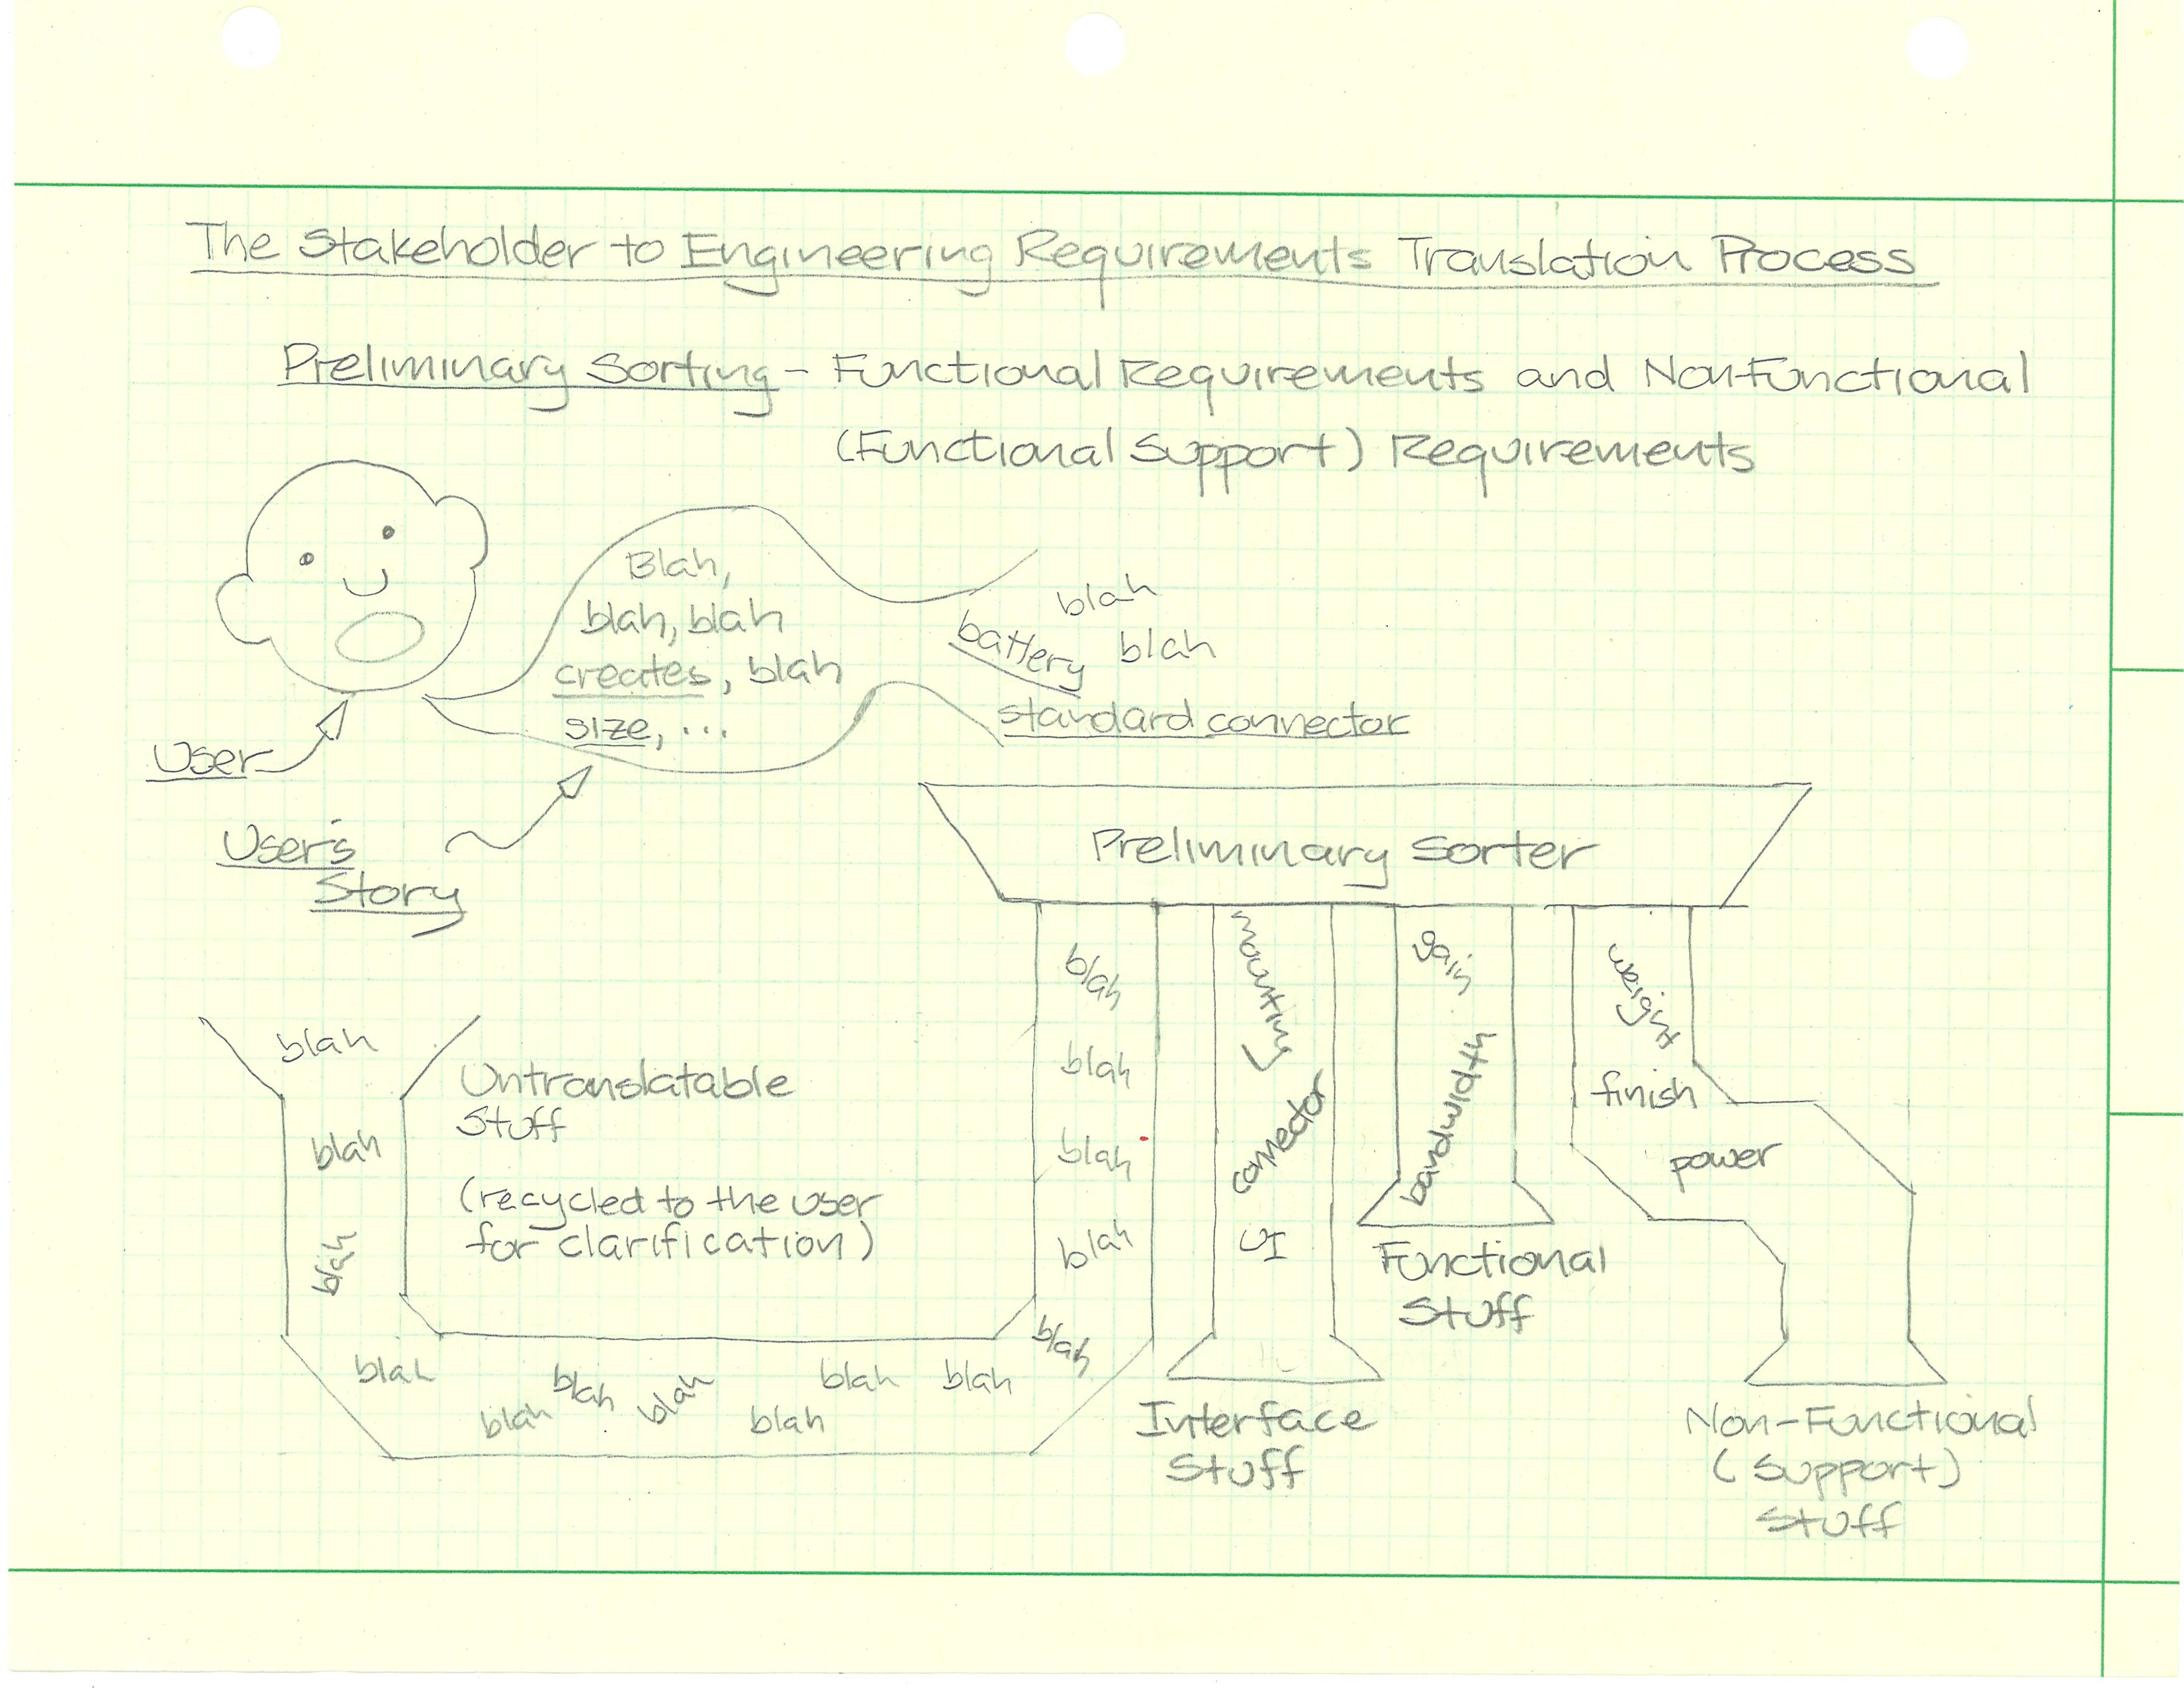 The Stakeholder to Engineering Requirements Translation Process
Preliminary Sorting - Functional Requirements and Non-Functional
(Functional Support) Requirements
Blah,
blah, blah
creates, blah
size, ...
blah
battery blah
standard connector
User
User's
Story
Preliminary Sorter
blah
blah
blah
blah
blah
mounting
connector
UI
gain
bandwidth
weight
finish
power
blah
blah
blah
Untranslatable
Stuff
(recycled to the user
for clarification)
blah
blah
blah
blah
blah
blah
blah
Interface
Stuff
Functional
Stuff
Non-Functional
(Support)
Stuff